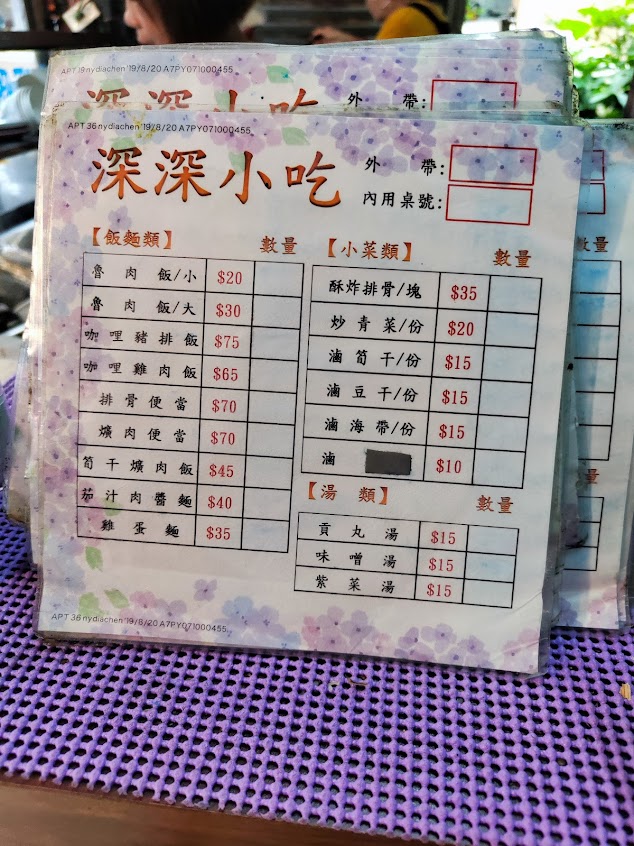 APT 19 nydiachen '19/8/20 A7PY071000455
深深小吃
外 帶:
APT 36 nydiachen '19/8/20 A7PY071000455
深深小吃
外 帶:
內用桌號:
【飯麵類】 數量
魯肉飯/小 $20
魯肉飯/大 $30
咖哩豬排飯 $75
咖哩雞肉飯 $65
排骨便當 $70
爌肉便當 $70
筍干爌肉飯 $45
茄汁肉醬麵 $40
雞蛋麵 $35
【小菜類】 數量
酥炸排骨/塊 $35
炒青菜/份 $20
滷筍干/份 $15
滷豆干/份 $15
滷海帶/份 $15
滷 $10
【湯 類】 數量
貢丸湯 $15
味噌湯 $15
紫菜湯 $15
APT 36 nydiachen '19/8/20 A7PY071000455
數量